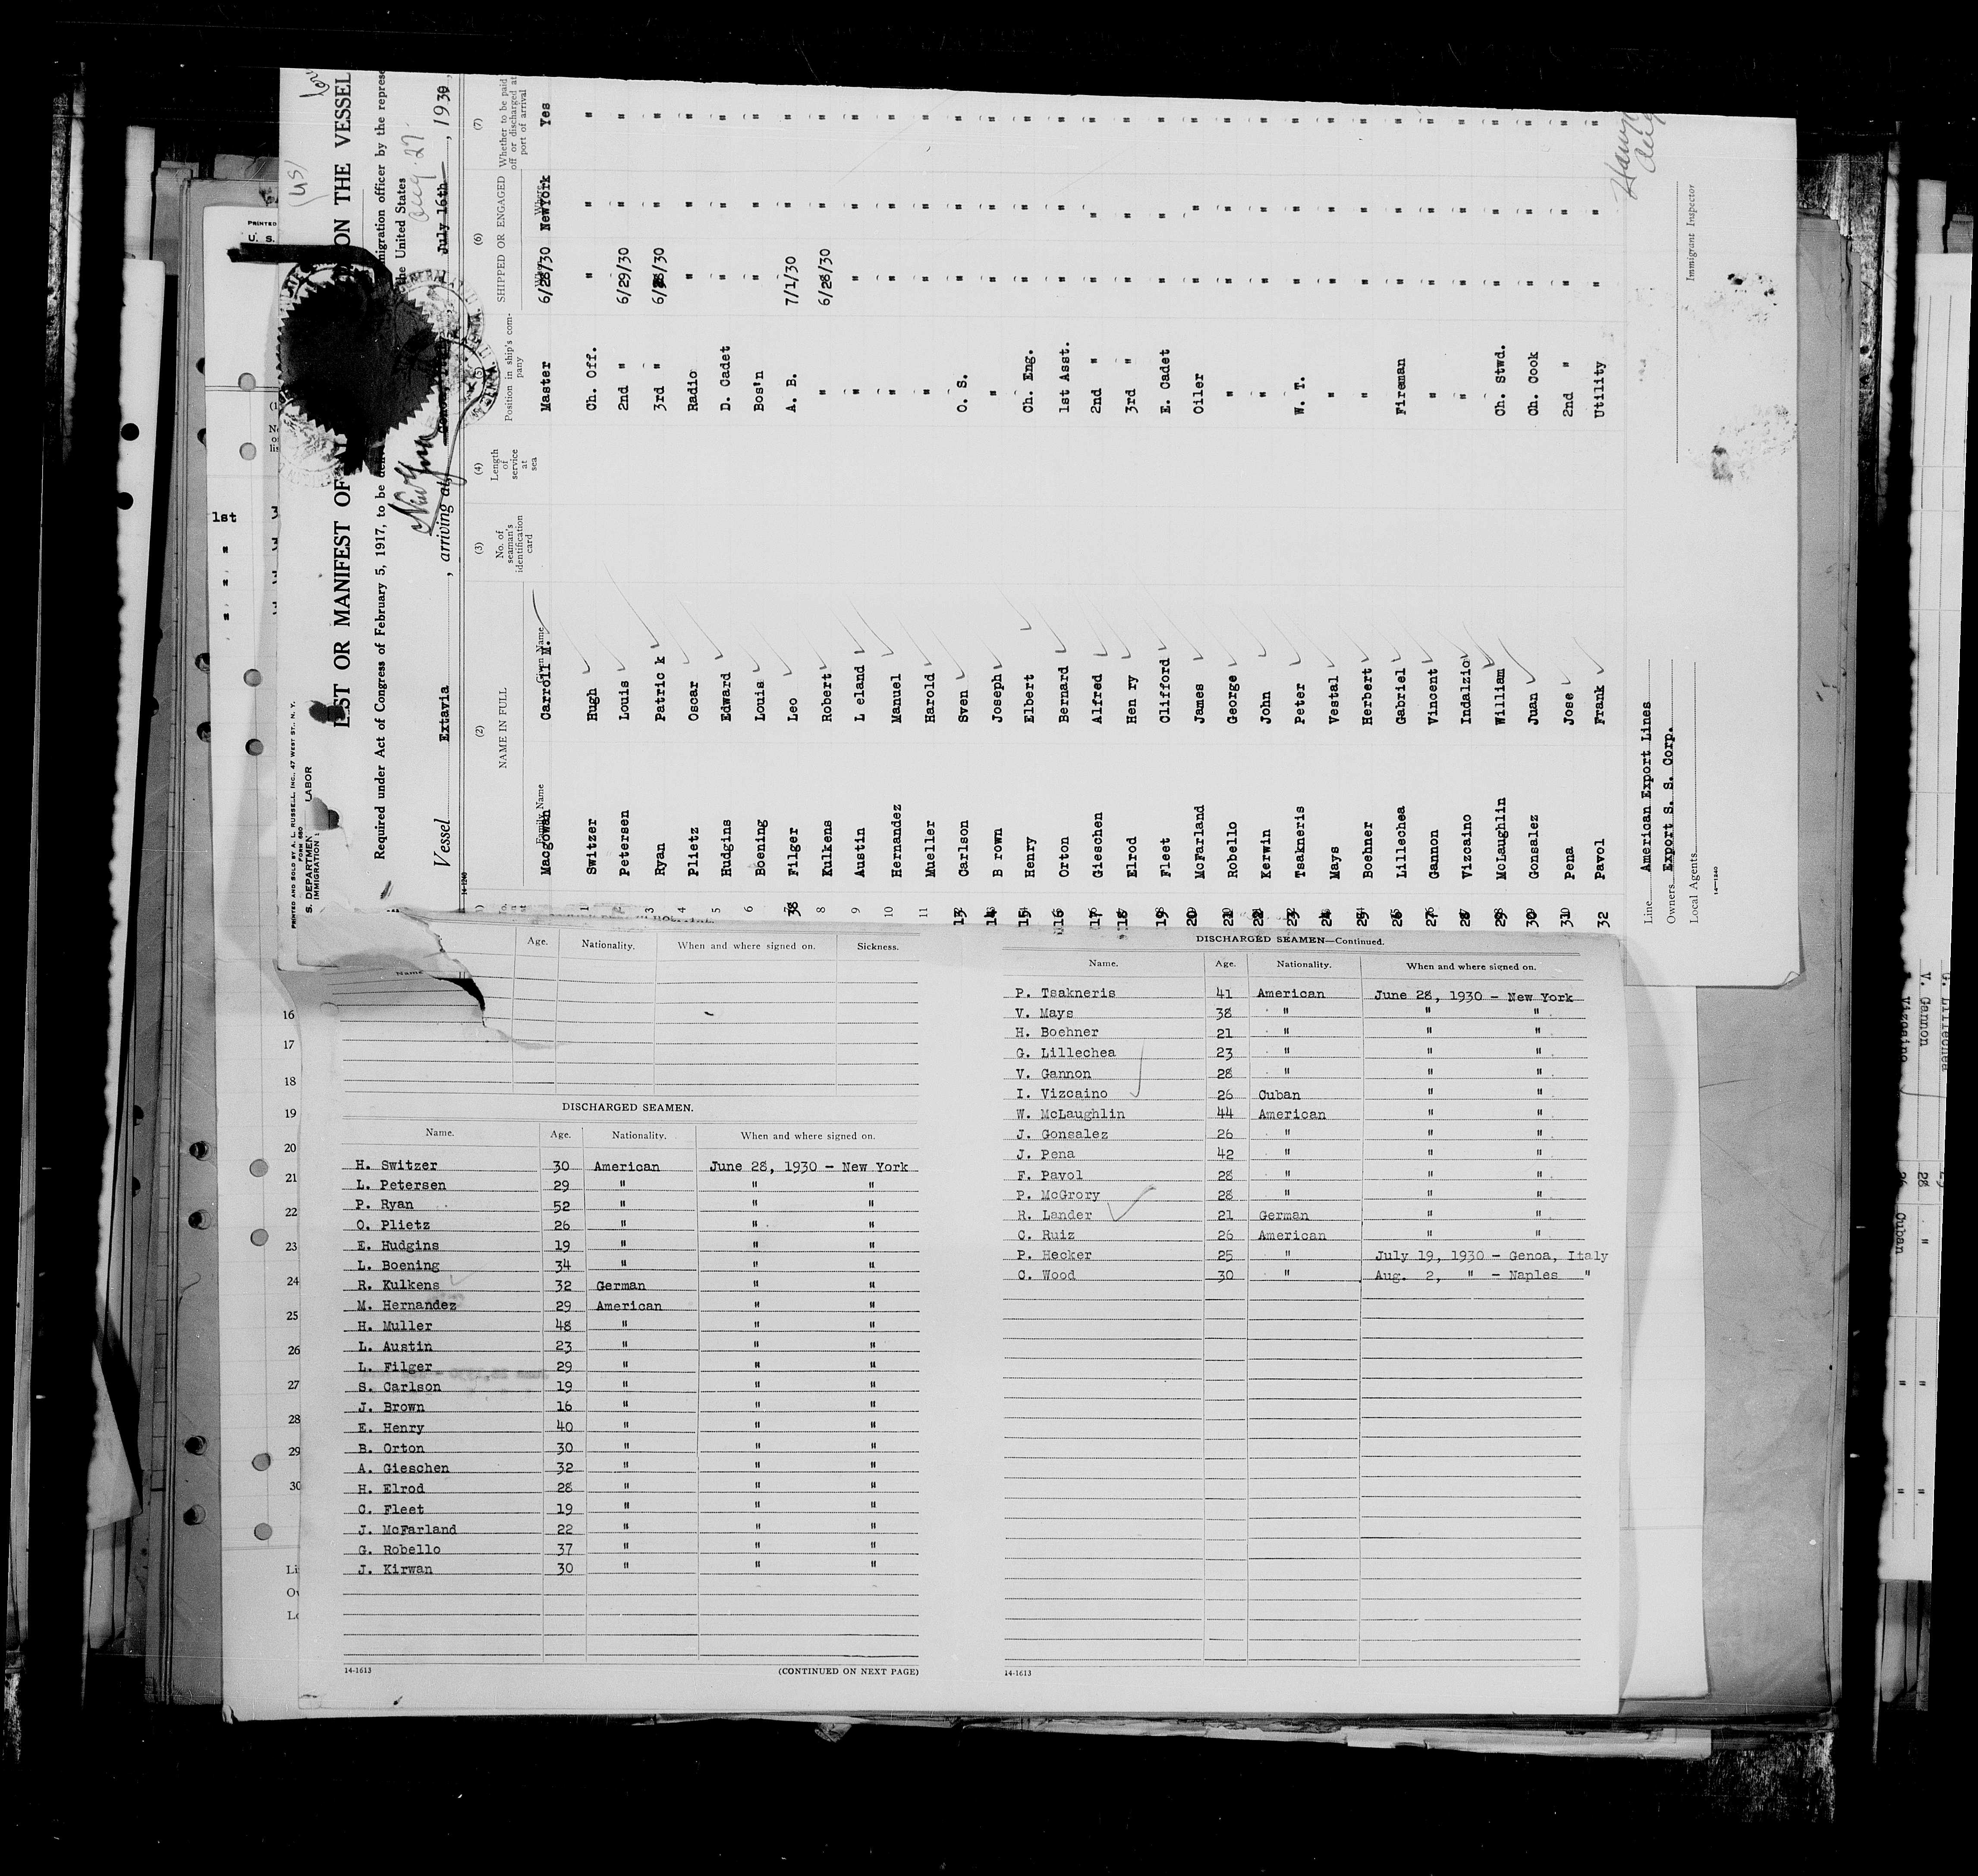 PRINTED AND SOLD BY A. L. RUSSELL, INC., 47 WEST ST., N. Y.
FORM 680
LABOR
LIST OR MANIFEST OF
ON THE VESSEL
Required under Act of Congress of February 5, 1917, to be
migration officer by the
the United States
Aug. 27
New York
Vessel Extavia , arriving at July 16th , 1930
(2) (3) (4) (5) (6) (7)
NAME IN FULL No. of seaman's identification card Length of service at sea Position in ship's company SHIPPED OR ENGAGED Whether to be paid off or discharged at port of arrival
Family Name Given Name When Where
Macgowan Carroll M. Master 6/28/30 NewYork Yes
1 Switzer Hugh Ch. Off. " " "
2 Petersen Louis 2nd " 6/29/30 " "
3 Ryan Patric k 3rd " 6/28/30 " "
4 Plietz Oscar Radio " " "
5 Hudgins Edward D. Cadet " " "
6 Boening Louis Bos'n " " "
38 Filger Leo A. B. 7/1/30 " "
8 Kulkens Robert " 6/28/30 " "
9 Austin L eland " " " "
10 Hernandez Manuel " " " "
11 Mueller Harold " " " "
13 Carlson Sven O. S. " " "
14 B rown Joseph " " " "
15 Henry Elbert Ch. Eng. " " "
16 Orton Bernard 1st Asst. " " "
17 Gieschen Alfred 2nd " " " "
18 Elrod Hen ry 3rd " " " "
19 Fleet Clifford E. Cadet " " "
20 McFarland James Oiler " " "
21 Robello George " " " "
22 Kerwin John " " " "
23 Tsakneris Peter W. T. " " "
24 Mays Vestal " " " "
25 Boehner Herbert " " " "
26 Lillechea Gabriel Fireman " " "
27 Gannon Vincent " " " "
28 Vizcaino Indalzio " " " "
29 McLaughlin William Ch. Stwd. " " "
30 Gonsalez Juan Ch. Cook " " "
31 Pena Jose 2nd " " " "
32 Pavol Frank Utility " " "
Line American Export Lines
Owners Export S. S. Corp.
Local Agents
Immigrant Inspector
14-1240
Age. Nationality. When and where signed on. Sickness.
DISCHARGED SEAMEN.
Name. Age. Nationality. When and where signed on.
H. Switzer 30 American June 28, 1930 - New York
L. Petersen 29 " " "
P. Ryan 52 " " "
O. Plietz 26 " " "
E. Hudgins 19 " " "
L. Boening 34 " " "
R. Kulkens 32 German " "
M. Hernandez 29 American " "
H. Muller 48 " " "
L. Austin 23 " " "
L. Filger 29 " " "
S. Carlson 19 " " "
J. Brown 16 " " "
E. Henry 40 " " "
B. Orton 30 " " "
A. Gieschen 32 " " "
H. Elrod 28 " " "
C. Fleet 19 " " "
J. McFarland 22 " " "
G. Robello 37 " " "
J. Kirwan 30 " " "
14-1613 (CONTINUED ON NEXT PAGE)
DISCHARGED SEAMEN—Continued.
Name. Age. Nationality. When and where signed on.
P. Tsakneris 41 American June 28, 1930 - New York
V. Mays 38 " " "
H. Boehner 21 " " "
G. Lillechea 23 " " "
V. Gannon 28 " " "
I. Vizcaino 26 Cuban " "
W. McLaughlin 44 American " "
J. Gonsalez 26 " " "
J. Pena 42 " " "
F. Pavol 28 " " "
P. McGrory 28 " " "
R. Lander 21 German " "
C. Ruiz 26 American " "
P. Hecker 25 " July 19, 1930 - Genoa, Italy
C. Wood 30 " Aug. 2, " - Naples "
14-1613
1st
"
"
"
16
17
18
19
20
21
22
23
24
25
26
27
28
29
30
V. Gannon 28 " " "
Cuban